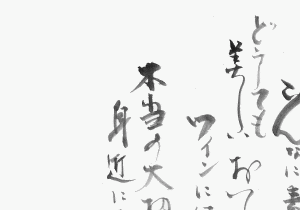 こんなに素
どうしても
美しい おつ
ワインに
本当の大切
身近に